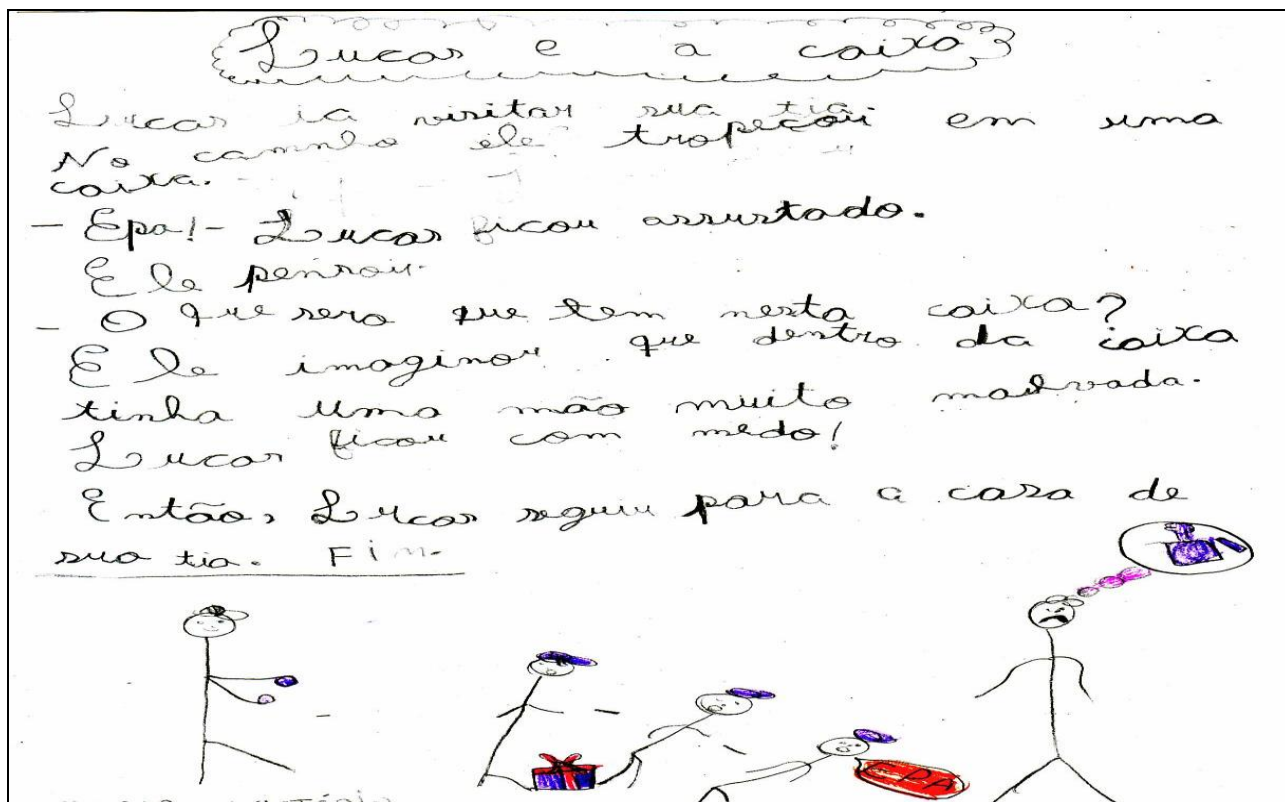 Lucas e a caixa
Lucas ia visitar sua tia.
No caminho ele tropeçou em uma
caixa.
- Epa! - Lucas ficou assustado.
Ele pensou.
- O que sera que tem nesta caixa?
Ele imaginou que dentro da caixa
tinha uma mão muito malvada.
Lucas ficou com medo!
Então, Lucas seguiu para a casa de
sua tia. Fim.
EPA